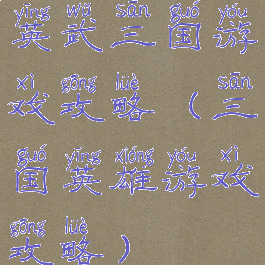 yīng wǔ sān guó yóu
英武三国游
xì gōng lüè sān
戏攻略（三
guó yīng xióng yóu xì
国英雄游戏
gōng lüè
攻略）